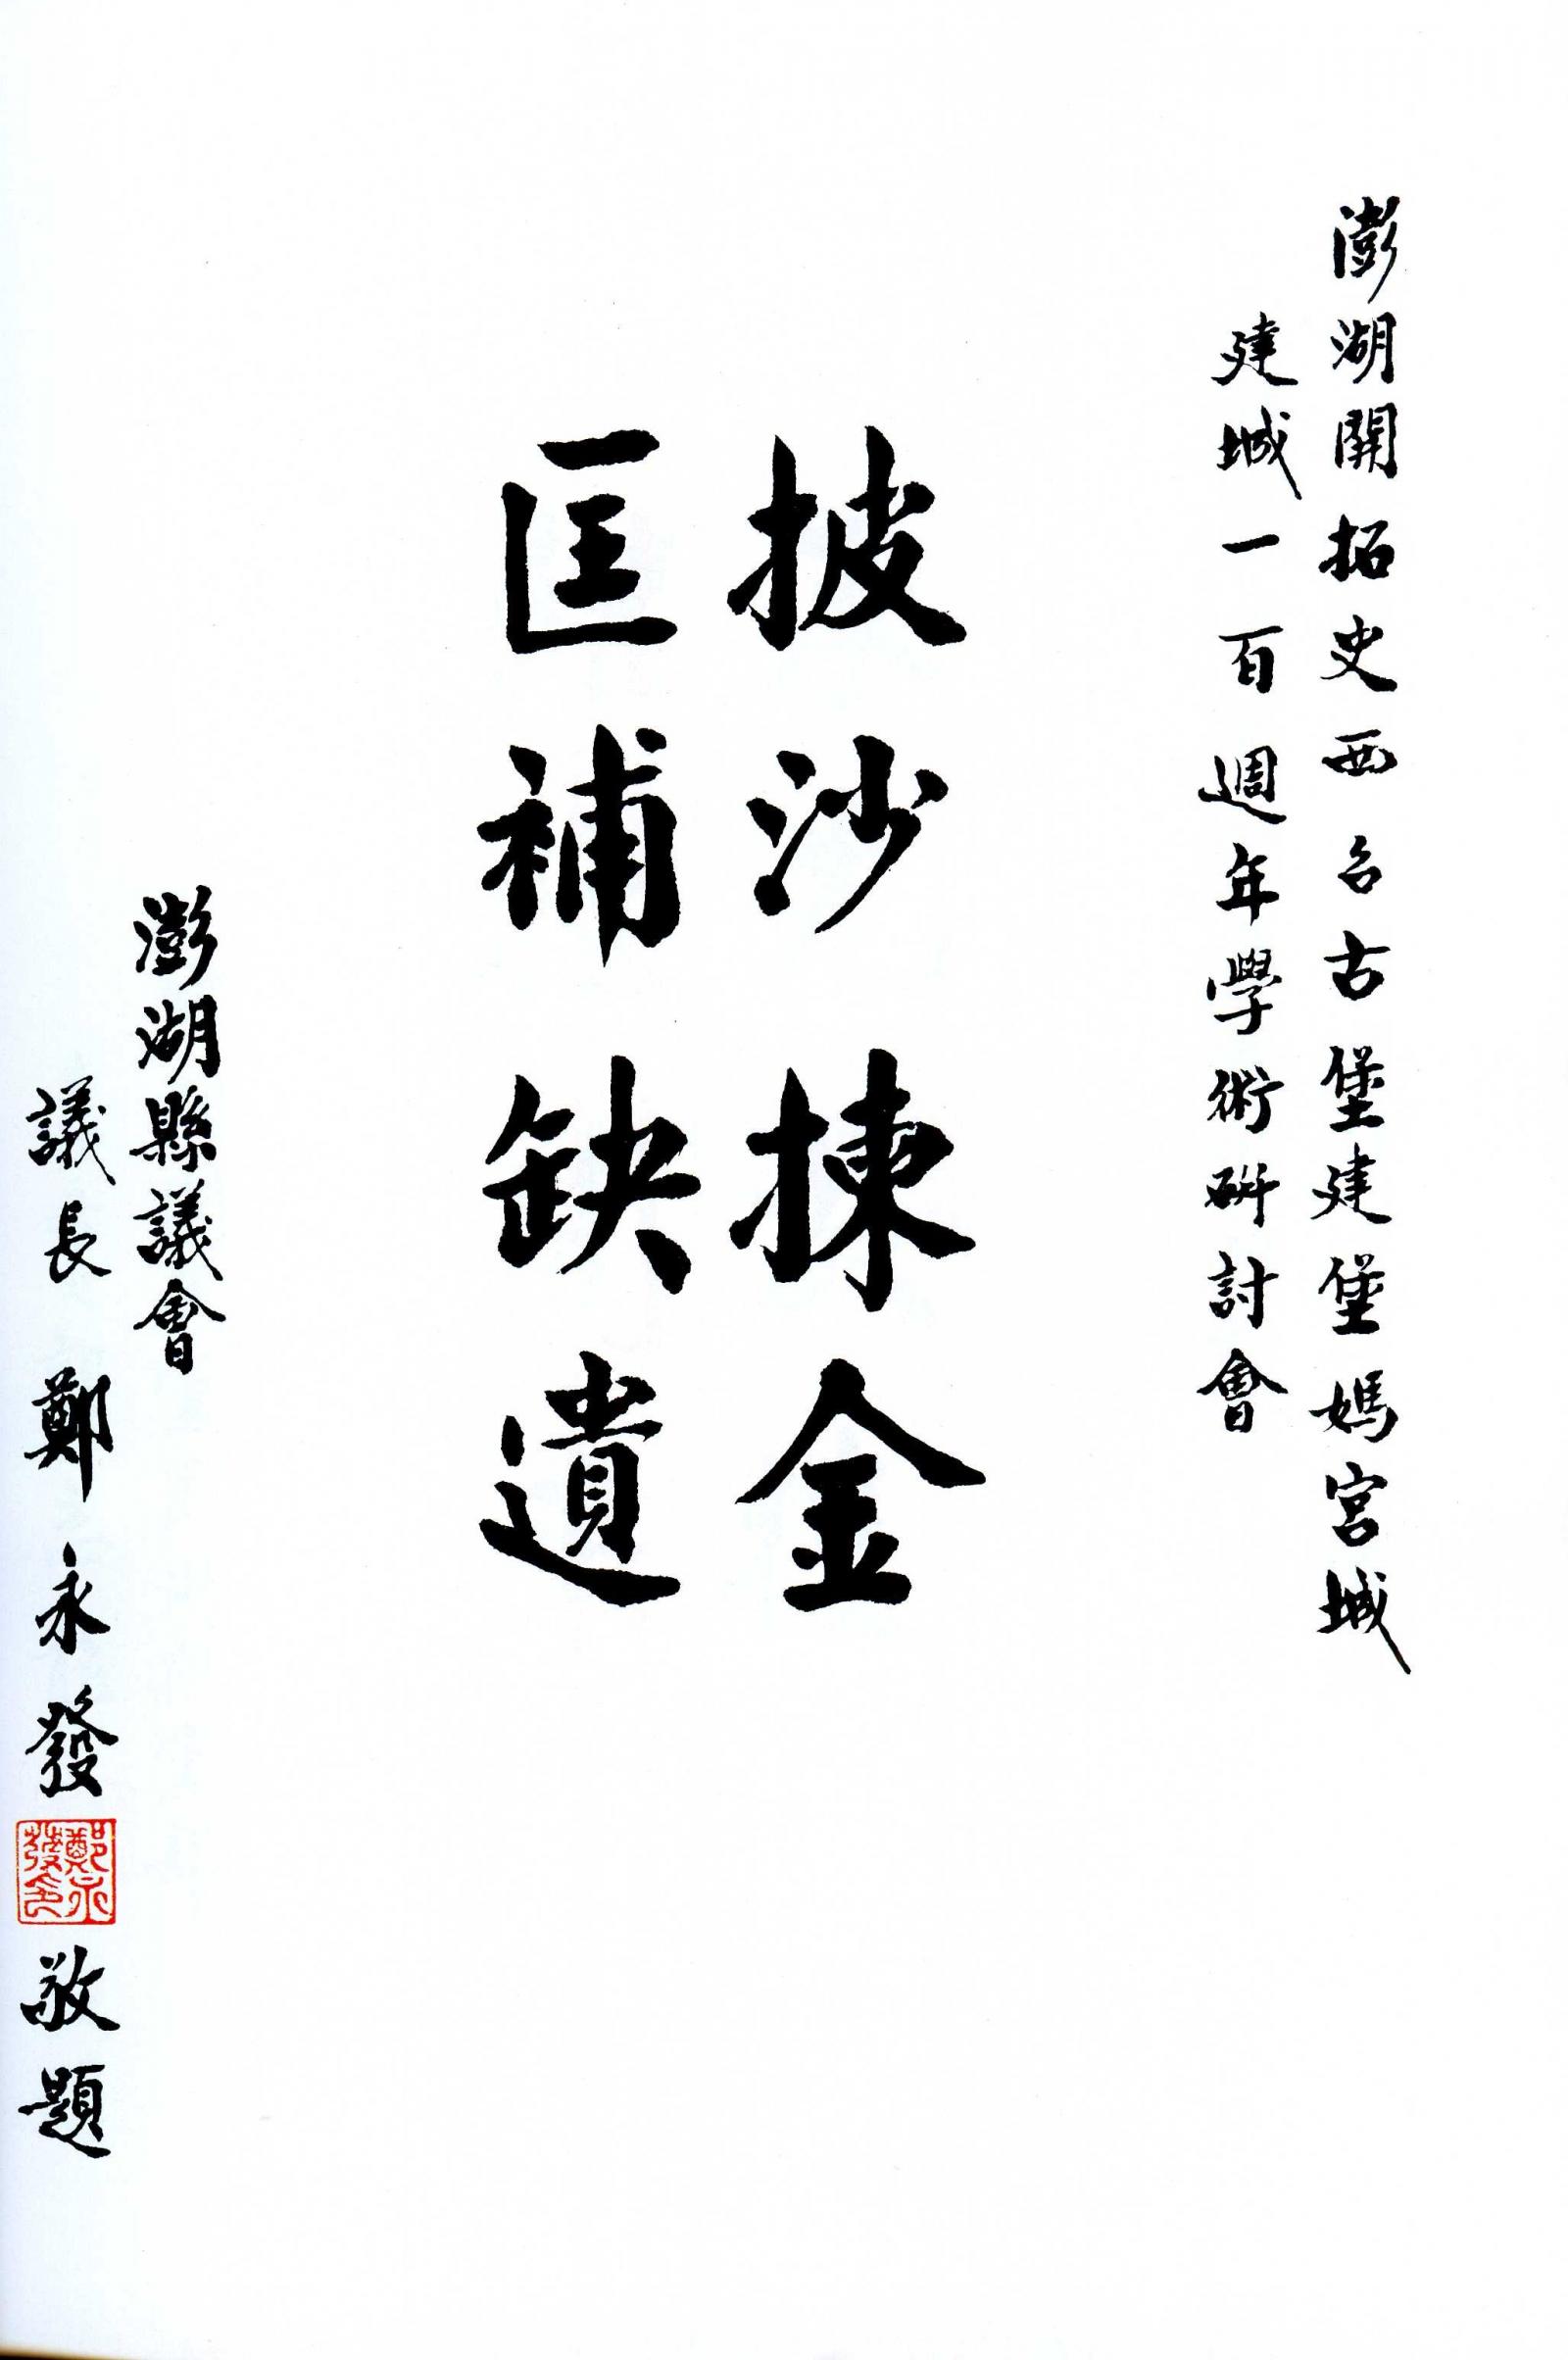 澎湖開拓史西台古堡建堡媽宮城
建城一百週年學術研討會
披沙揀金
匡補缺遺
澎湖縣議會
議長 鄭永發 敬題
鄭永發印